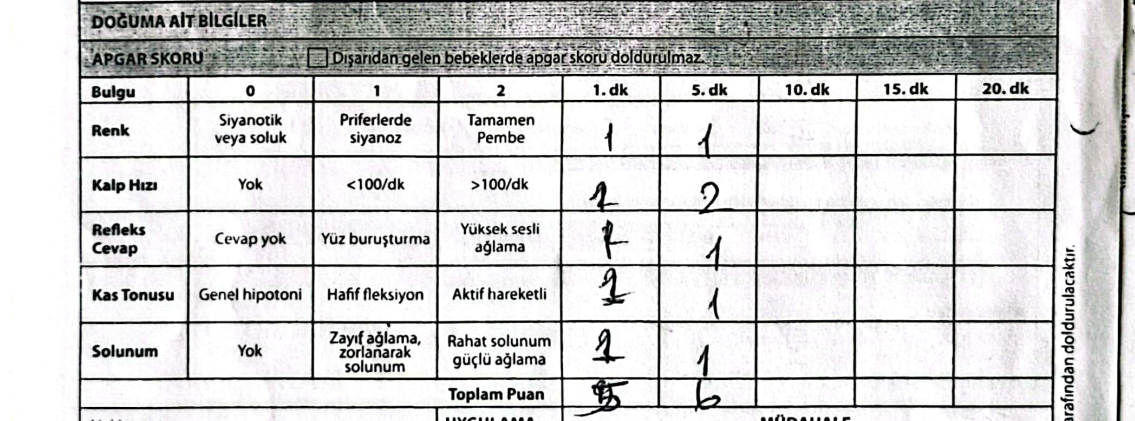 DOĞUMA AİT BİLGİLER
APGAR SKORU Dışarıdan gelen bebeklerde apgar skoru doldurulmaz.
Bulgu 0 1 2 1. dk 5. dk 10. dk 15. dk 20. dk
Renk Siyanotik veya soluk Priferlerde siyanoz Tamamen Pembe 1 1
Kalp Hızı Yok <100/dk >100/dk 2
Refleks Cevap Cevap yok Yüz buruşturma Yüksek sesli ağlama 1
Kas Tonusu Genel hipotoni Hafif fleksiyon Aktif hareketli 1
Solunum Yok Zayıf ağlama, zorlanarak solunum Rahat solunum güçlü ağlama 1
Toplam Puan 6
UYGULAMA MÜDAHALE
arafından doldurulacaktır.